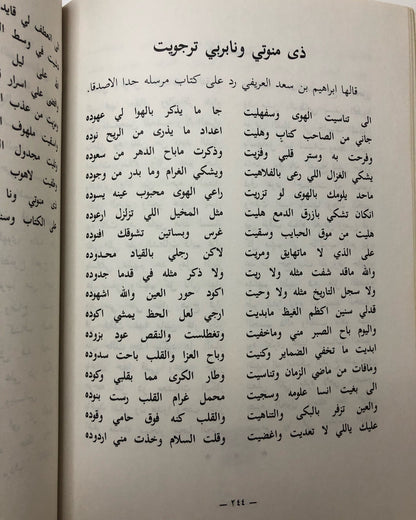 ذى منوتي ونابربي ترجويت
قالها ابراهيم بن سعد العريفي رد على كتاب مرسله حدا الاصدقا.
الى تناسيت الهوى وسفهليت جا ما يذكر بالهوا لي عهوده
جاني من الصاحب كتاب وهليت اعداد ما يذرى من الريح نوده
وفرحت به وستر قلبي وفزيت وذكرت ماباح الدهر من سعوده
يشكي الغزال اللي رعى بالفلاهيت ويشكي الغرام وما بدر من وجوده
ماحد يلومك بالهوى لو تزريت راعي الهوى محبوب عينه يسوده
انكان تشكي بازرق الدمع هليت مثل المخيل اللي تزلزل ارعوده
هليت من موق الحبايب وسقيت غرس وبساتين تشوقك افنوده
على الذي لا ماتهايق ومريت لاكن رجلي بالقياد محدوده
والله ماقد شفت مثله ولا ريت ولا ذكر مثله في قدما جدوده
ولا سجل التاريخ مثله ولا وحيت اكود حور العين والله اشهوده
قدلي سنين اكظم الغيظ مابديت ارجي لعل الحظ يمشي اكوده
واليوم باح الصبر مني وماخفيت وتغطلست والنقص عود بزوده
ابديت ما تخفي الضماير وكنيت وباح العزا والقلب باحت سدوده
ومافات من ماضي الزمان وتناسيت وطار الكرى مما بقلبي وكوده
الى بغيت انسا علومه وسجيت محمل غرام القلب رست بنوده
والعين تزفر بالبكى والتناهيت والقلب كنه فوق حامي وقوده
عليك ياللي لا تعديت واغضيت وقلت السلام وخذت مني اردوده
— ٢٤٤ —